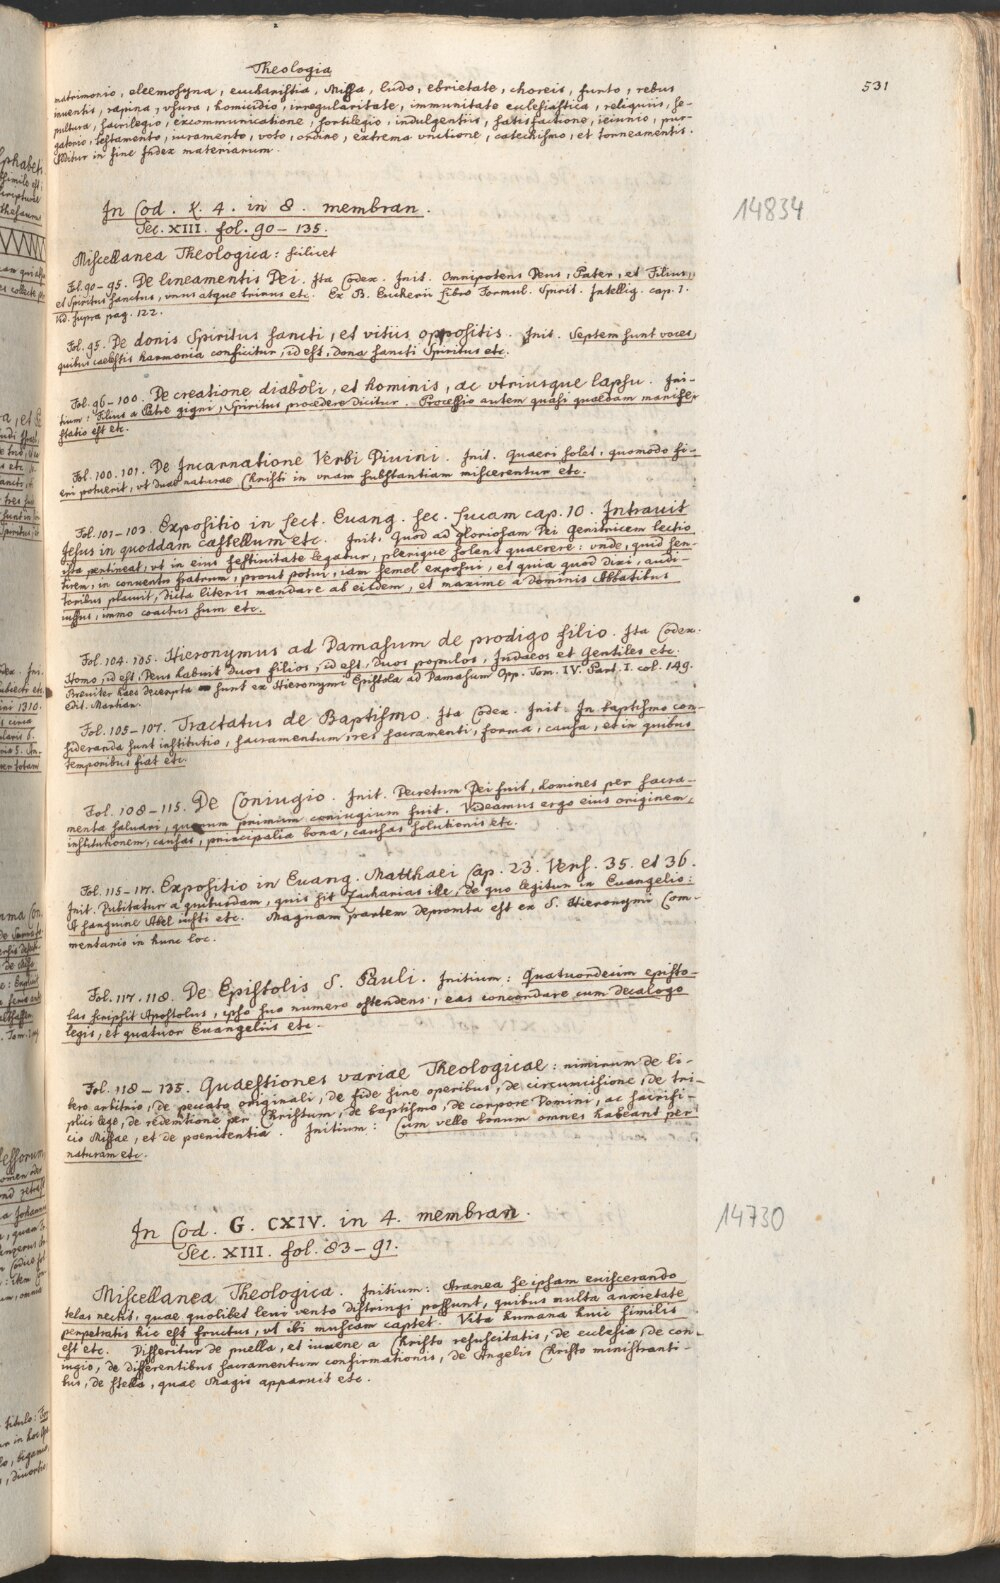 Theologia
531
matrimonio, eleemosyna, eucharistia, Missa, ludo, ebrietate, choreis, furto, rebus
inuentis, rapina, vsura, homicidio, irregularitate, immunitate ecclesiastica, reliquiis, se-
pultura, sacrilegio, excommunicatione, sortilegio, indulgentiis, satisfactione, ieiunio, pur-
gatorio, testamento, iuramento, voto, ordine, extrema vnctione, catechismo, et torneamentis.
Additur in fine Index materiarum.
In Cod. K. 4. in 8. membran.
14834
Sec. XIII. fol. 90-135.
Miscellanea Theologica: scilicet
Fol. 90-95. De lineamentis Dei. Ita Codex. Init. Omnipotens Deus, Pater, et Filius,
et Spiritus sanctus, vnus atque trinus etc. Ex B. Eucherii Libro Formul. Spirit. Intellig. cap. 1.
Vid. supra pag. 122.
Fol. 95. De donis Spiritus sancti, et vitiis oppositis. Init. Septem sunt voces,
quibus caelestis harmonia conficitur, id est, dona sancti Spiritus etc.
Fol. 96-100. De creatione diaboli, et hominis, ac vtriusque lapsu. Ini-
tium: Filius a Patre gigni, Spiritus procedere dicitur. Processio autem quasi quaedam manife-
statio est etc.
Fol. 100. 101. De Incarnatione Verbi Divini. Init. Quaeri solet, quomodo fi-
eri potuerit, vt duae naturae Christi in vnam substantiam miscerentur etc.
Fol. 101-103. Expositio in sect. Euang. sec. Lucam cap. 10. Intrauit
Jesus in quoddam castellum etc. Init. Quod ad gloriosam Dei Genitricem lectio
ista pertineat, vt in eius festiuitate legatur, plerique solent quaerere: vnde, quid sen-
tirem, in conuentu fratrum, prout potui, iam semel exposui, et quia quod dixi, audi-
toribus placuit, dicta literis mandare ab eisdem, et maxime a dominis Abbatibus
iussus, immo coactus sum etc.
Fol. 104. 105. Hieronymus ad Damasum de prodigo filio. Ita Codex.
Homo, id est, Deus habuit duos filios, id est, duos populos, Judaeos et Gentiles etc.
Breuiter haec decerpta sunt ex Hieronymi Epistola ad Damasum Opp. Tom. IV. Part. I. col. 149.
Edit. Martian.
Fol. 105-107. Tractatus de Baptismo. Ita Codex. Init. In baptismo con-
sideranda sunt institutio, sacramentum, res sacramenti, forma, causa, et in quibus
temporibus fiat etc.
Fol. 108-115. De Coniugio. Init. Decretum Dei fuit, homines per sacra-
menta saluari, quorum primum coniugium fuit. Videamus ergo eius originem,
institutionem, causas, principalia bona, causas solutionis etc.
Fol. 115-117. Expositio in Euang. Matthaei Cap. 23. Vers. 35. et 36.
Init. Dubitatur a quibusdam, quis sit Zacharias ille, de quo legitur in Euangelio:
A sanguine Abel iusti etc. Magnam partem depromta est ex S. Hieronymi Com-
mentario in hunc loc.
Fol. 117. 118. De Epistolis S. Pauli. Initium: Quatuordecim episto-
las scripsit Apostolus, ipso suo numero ostendens, eas concordare cum decalogo
legis, et quatuor Euangeliis etc.
Fol. 118-135. Quaestiones variae Theologicae: nimirum de li-
bero arbitrio, de peccato originali, de fide sine operibus, de circumcisione, de tri-
plici lege, de redemtione per Christum, de baptismo, de corpore Domini, ac sacrifi-
cio Missae, et de poenitentia. Initium: Cum velle bonum omnes habeant per
naturam etc.
In Cod. G. CXIV. in 4. membran.
14730
Sec. XIII. fol. 83-91.
Miscellanea Theologica. Initium: Aranea se ipsam euiscerando
telas nectit, quae quolibet leui vento distringi possunt, quibus multa anxietate
perpetratis hic est fructus, vt ibi muscam captet. Vita humana huic similis
est etc. Disseritur de puella, et iuuene a Christo resuscitatis, de ecclesia, de con-
iugio, de differentibus sacramentum confirmationis, de Angelis Christo ministranti-
bus, de stella, quae Magis apparuit etc.